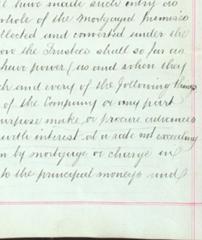 have made such entry or
whole of the Mortgaged premises
llected and converted under the
ove the Trustees shall so far as
have power (as and when they
ch and every of the following
of the Company or any part
urpose make or procure advances
with interest at a rate not exceeding
n by mortgage or charge in
to the principal moneys and